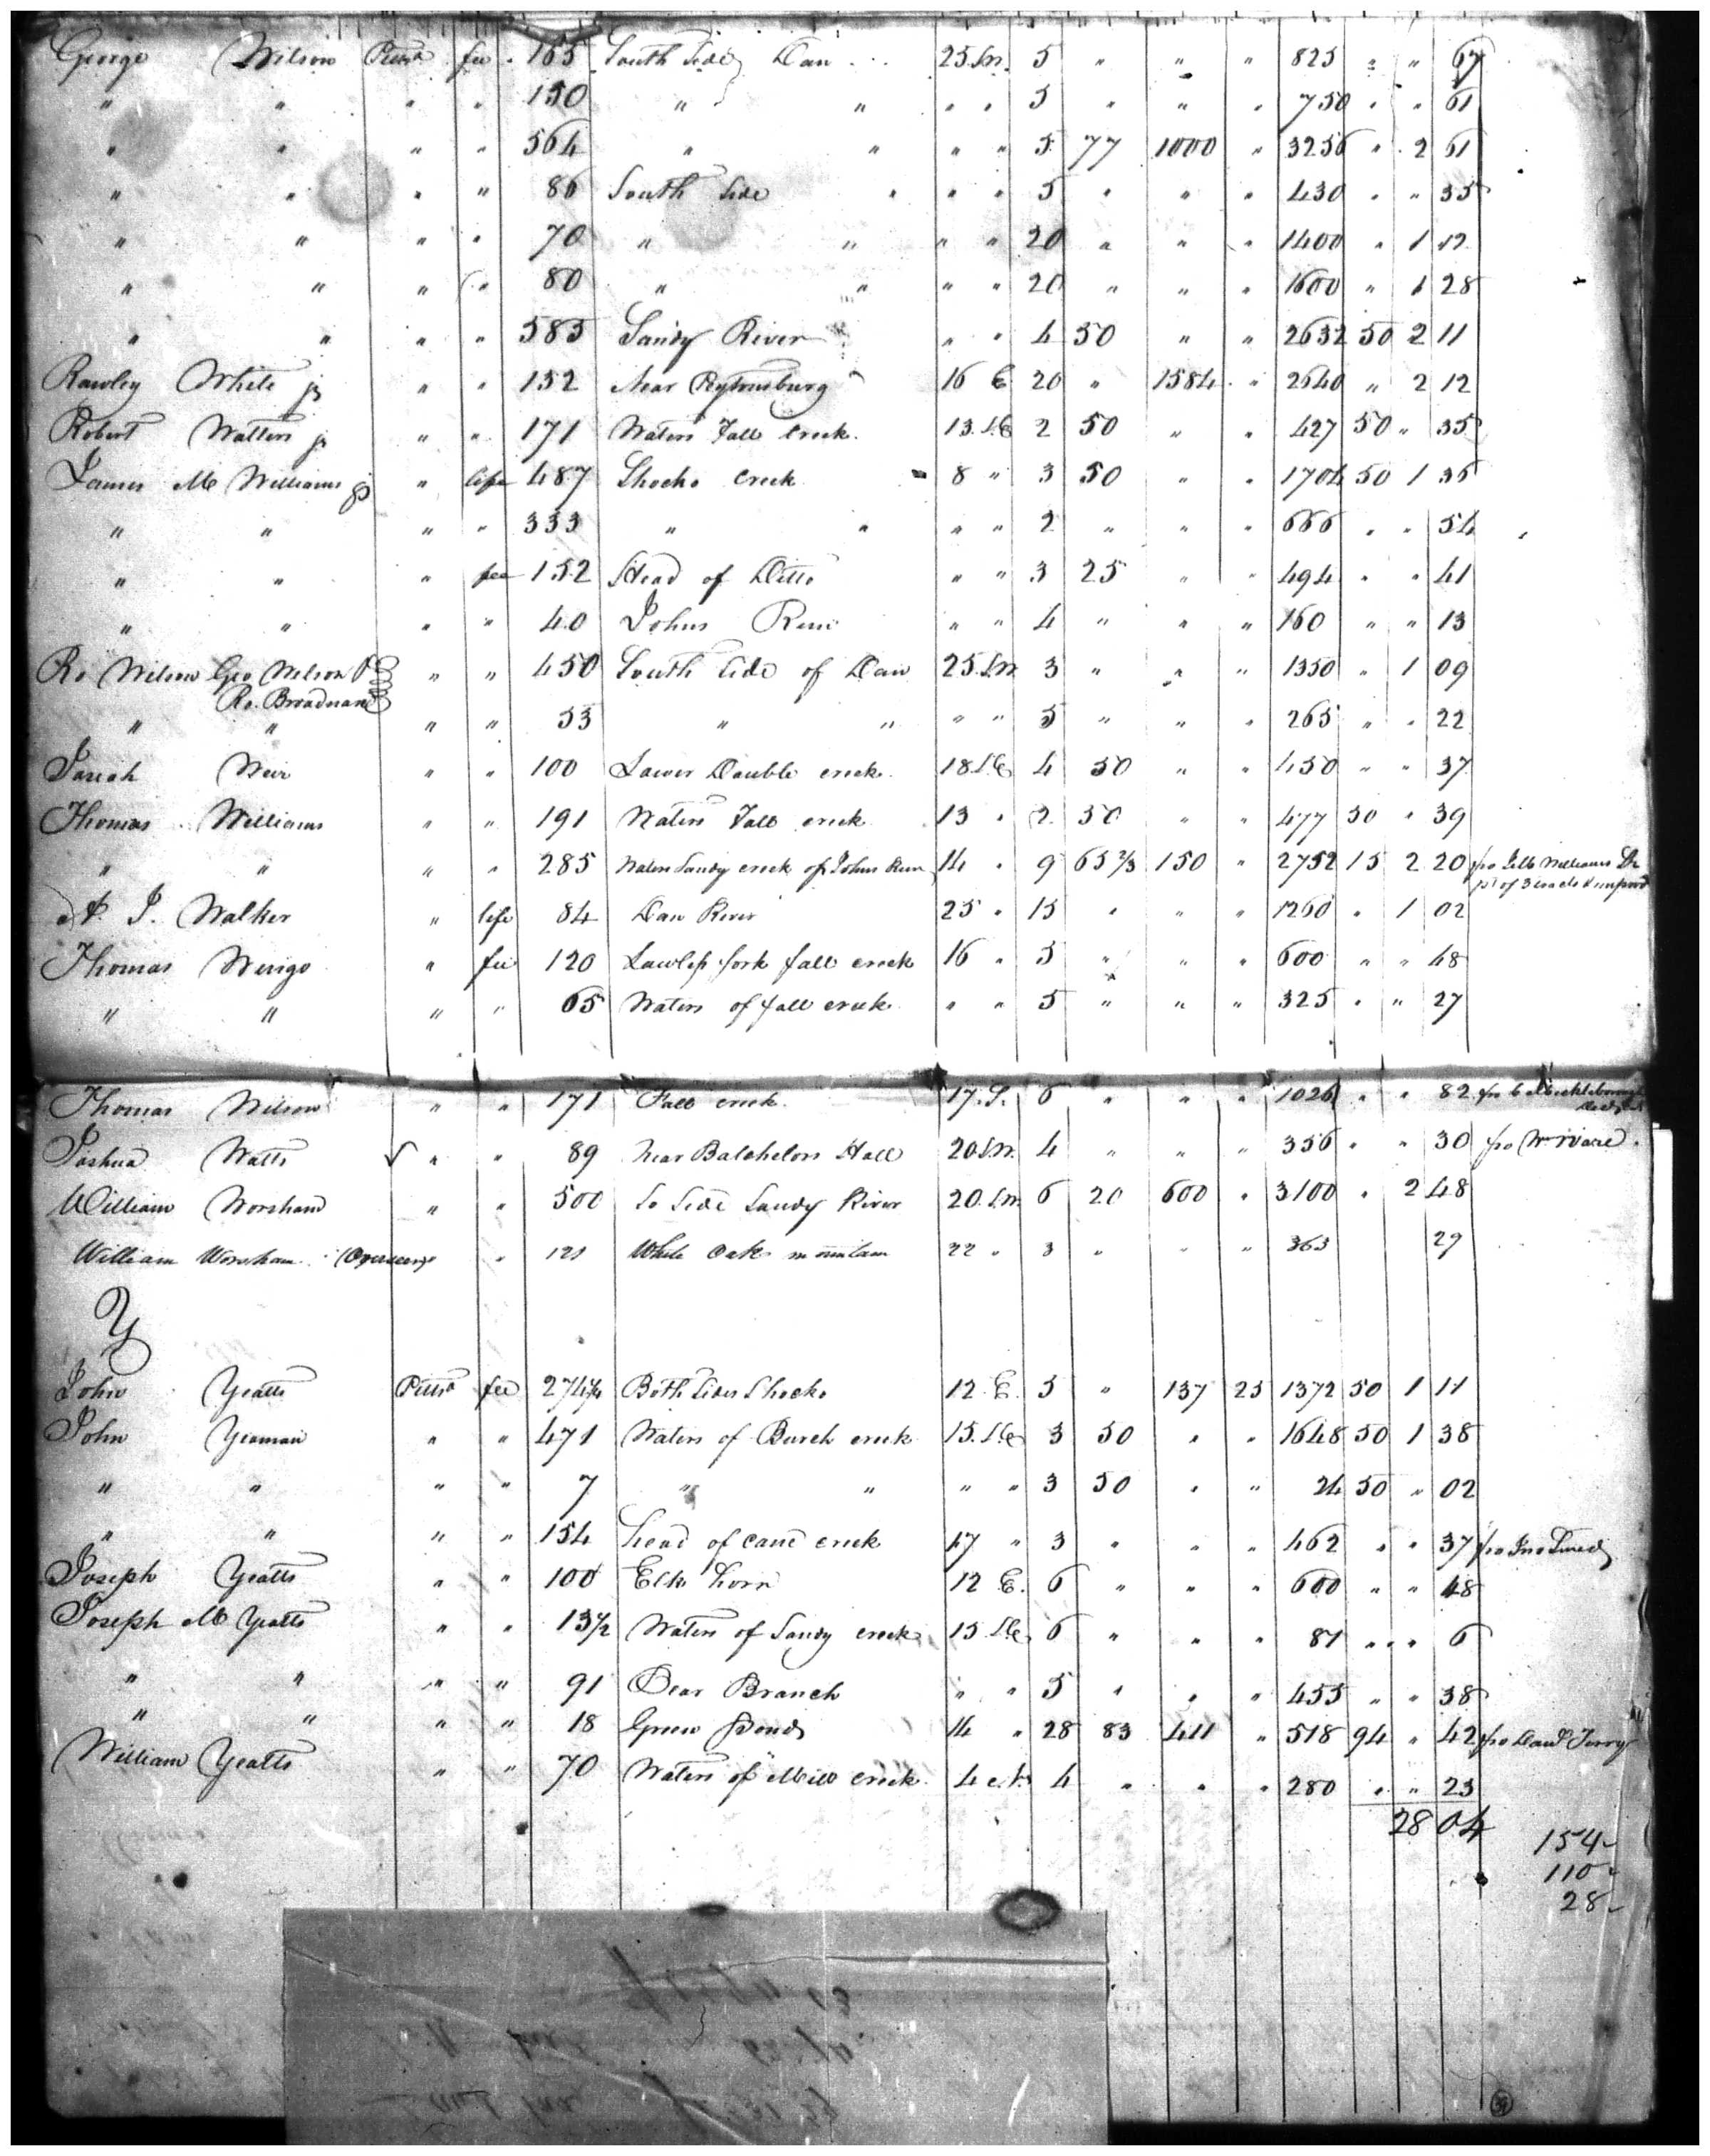 George Wilson Pittsa fee " 165 South Side Dan 25 S.W. 5 " " " 825 " " 67
" " " " 150 " " " " 5 " " " 750 " " 61
" " " " 564 " " " " 5 77 1000 " 3256 " 2 61
" " " " 86 South Side " " " 5 " " " 430 " " 35
" " " " 70 " " " " 20 " " " 1400 " 1 12
" " " " 80 " " " " 20 " " " 1600 " 1 28
" " " " 585 Sandy River " " 4 50 " " 2632 50 2 11
Rawley White jr " " 132 Near 16 E 20 " 1584 " 2640 " 2 12
Robert Watters jr " " 171 Waters Fall creek 13 S.E 2 50 " " 427 50 " 35
James M Williams jr " life 487 Shocko Creek 8 " 3 50 " " 1704 50 1 35
" " " " 333 " " " " 2 " " " 666 " " 54
" " " fee 152 Head of Ditto " " 3 25 " " 494 " " 41
" " " " 40 Johns Run " " 4 " " " 160 " " 13
Ro Wilson Geo Wilson " " 450 South Side of Dan 25 S.W. 3 " " " 1350 " 1 09
Ro. Broadnax
" " " " 53 " " " " 5 " " " 265 " " 22
Weir " " 100 Lower Double creek 18 S.E 4 50 " " 450 " " 37
Thomas Williams " " 191 Waters Fall creek 13 " 2 50 " " 477 50 " 39
" " " " 285 Waters Sandy creek of Johns Run 14 " 9 65 2/3 150 " 2752 15 2 20 fro Williams
pt of 3 tracts &
Walker " life 84 Dan River 25 " 15 " " " 1260 " 1 02
Thomas Wingo " fee 120 Lawless fork fall creek 16 " 5 " " " 600 " " 48
" " " " 65 Waters of fall creek " " 5 " " " 325 " " 27
Thomas Wilson " " 171 Fall creek 17 S. 6 " " " 1026 " " 82 fro
Joshua Watts √ " " 89 Near Batchelors Hall 20 S.W. 4 " " " 356 " " 30 fro Wm Ware
William Worsham " " 500 So Side Sandy River 20 S.W. 6 20 600 " 3100 " 2 48
William Worsham (Overseer) " 121 White Oak mountain 22 " 3 " " " 363 29
Y
John Yeatts Pittsa fee 274½ Both Sides Shocko 12 E. 5 " 137 25 1372 50 1 11
John Yeaman " " 471 Waters of Burch creek 15 S.E 3 50 " " 1648 50 1 38
" " " " 7 " " " " 3 50 " " 24 50 " 02
" " " " 154 head of cane creek 17 " 3 " " " 462 " " 37 fro Jno
Joseph Yeatts " " 100 Elk horn 12 E. 6 " " " 600 " " 48
Joseph M Yeatts " " 13½ Waters of Sandy creek 15 S.E 6 " " " 81 " " 6
" " " " 91 Bear Branch " " 5 " " " 455 " " 38
" " " " 18 Green Pond 14 " 28 83 411 " 518 94 " 42 fro Davd Terry
William Yeatts " " 70 Waters of Mill creek 4 4 " " " 280 " " 23
28 04
154
110
28